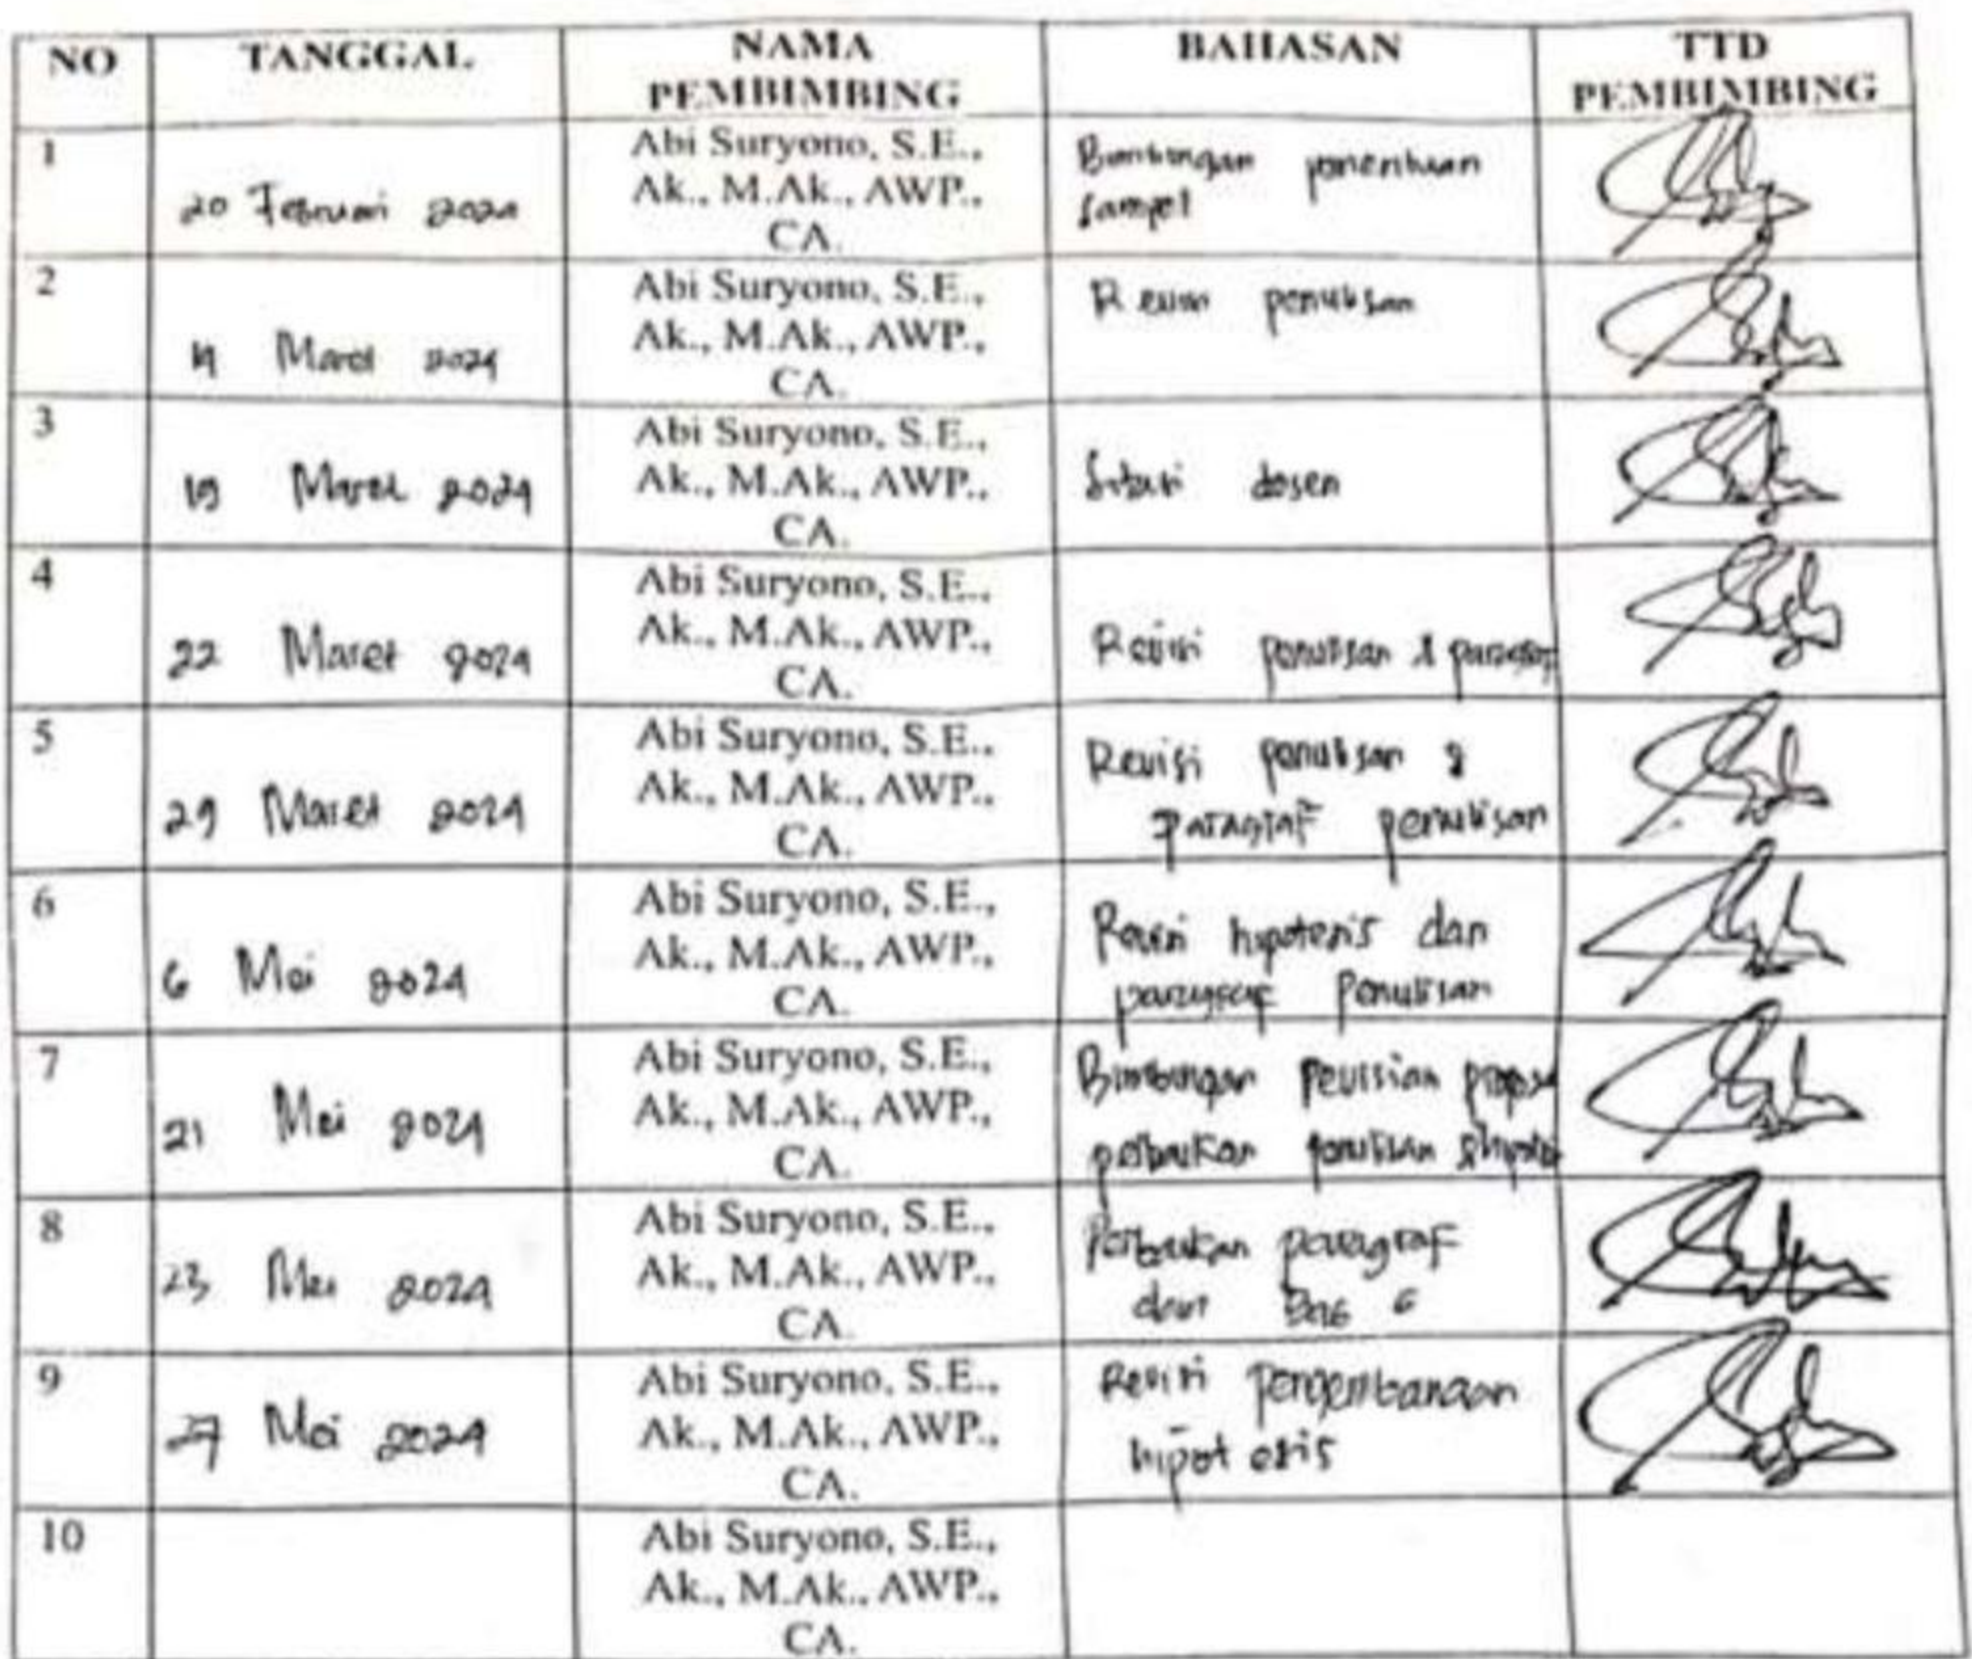 NO TANGGAL NAMA PEMBIMBING BAHASAN TTD PEMBIMBING
1
20 Februari 2024
Abi Suryono, S.E.,
Ak., M.Ak., AWP.,
CA.
Bimbingan penentuan
sampel
2
Maret 2024
Abi Suryono, S.E.,
Ak., M.Ak., AWP.,
CA.
Revisi penulisan
3
19 Maret 2024
Abi Suryono, S.E.,
Ak., M.Ak., AWP.,
CA.
Sitasi dosen
4
22 Maret 2024
Abi Suryono, S.E.,
Ak., M.Ak., AWP.,
CA.
Revisi penulisan & paragraf
5
29 Maret 2024
Abi Suryono, S.E.,
Ak., M.Ak., AWP.,
CA.
Revisi penulisan &
paragraf penulisan
6
6 Mei 2024
Abi Suryono, S.E.,
Ak., M.Ak., AWP.,
CA.
Revisi hipotesis dan
paragraf Penulisan
7
21 Mei 2024
Abi Suryono, S.E.,
Ak., M.Ak., AWP.,
CA.
Bimbingan
perbaikan penulisan
8
23 Mei 2024
Abi Suryono, S.E.,
Ak., M.Ak., AWP.,
CA.
Perbaikan paragraf
9
27 Mei 2024
Abi Suryono, S.E.,
Ak., M.Ak., AWP.,
CA.
Revisi pengembangan
hipotesis
10
Abi Suryono, S.E.,
Ak., M.Ak., AWP.,
CA.